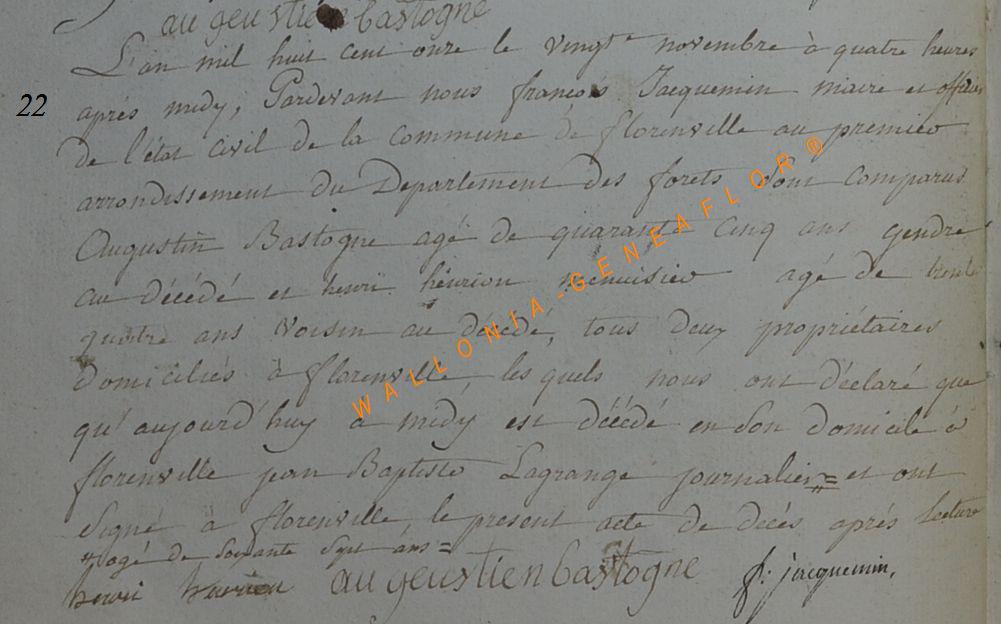 augeustien bastogne
L'an mil huit cent onze le vingt novembre à quatre heures
22
après midy, Pardevant nous françois Jacquemin maire et officier
de l'état civil de la commune de florenville au premier
arrondissement du Departement des forets Sont comparus
Augustin Bastogne agé de quarante cinq ans gendre
au décédé et henri henrion menuisier agé de trente
quatre ans Voisin au décédé, tous deux propriétaires
domiciliés à florenville, les quels nous ont déclaré que
qu'aujourd'huy a midy est décédé en Son domicile à
florenville jean Baptiste Lagrange journalier = et ont
Signé à florenville, le present acte de décés aprés lecture
agé de Soixante Sept ans =
henri henrion augeustien bastogne f: jacquemin,
WALLONIA-GENEAFLOR ®